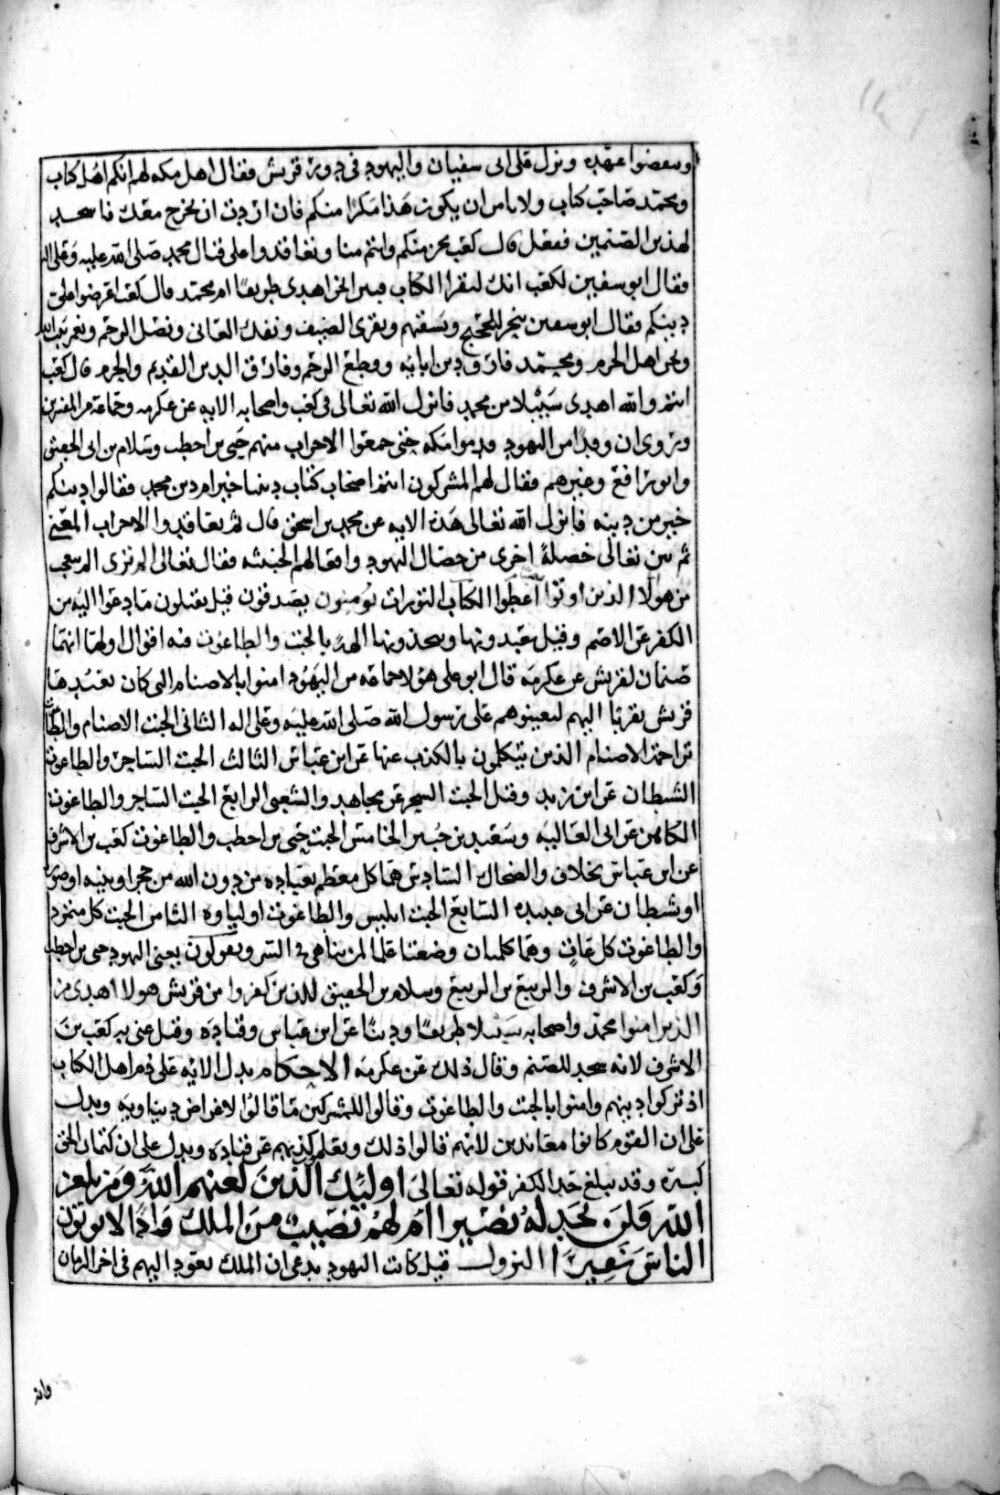 وينقضوا عهده ونزل على ابى سفيان واليهود فى دور قريش فقال اهل مكه لهم انكم اهل كتاب
ومحمد صاحب كتاب ولا نامن ان يكون هذا مكرا منكم فان اردت ان نخرج معك فاسجد
لهذين الصنمين ففعل قال كعب نحن منكم وانتم منا وتعاقدوا على قتال محمد صلى الله عليه وعلى اله
فقال ابو سفين لكعب انك لتقرا الكتاب فمن اهدى طريقا ام محمد قال كعب اعرضوا على
دينكم فقال ابو سفين ننحر للحجيج ونسقيهم ونقرى الضيف ونفك العانى ونصل الرحم ونعمر بيت الله
ونحن اهل الحرم ومحمد فارق دين ابائه وقطع الرحم وفارق الدين القديم والحرم قال كعب
انتم والله اهدى سبيلا من محمد فانزل الله تعالى فى كعب واصحابه الايه عن عكرمه وجماعة من المفسرين
وروى ان وفدا من اليهود قدموا مكه حتى جمعوا الاحزاب منهم حيى بن احطب وسلام بن ابى الحقيق
وابو رافع وغيرهم فقال لهم المشركون انتم اصحاب كتاب ديننا خير ام دين محمد فقالوا دينكم
خير من دينه فانزل الله تعالى هذه الايه عن محمد بن اسحق قال ثم تعاقدوا الاحزاب المعنى
ثم بين تعالى خصلة اخرى من خصال اليهود وافعالهم الخبيثه فقال تعالى الم ترى الم تعجب
من هولا الذين اوتوا اعطوا الكتاب التورات يومنون يصدقون قيل يقبلون ما دعوا اليه من
الكفر عن الاصم وقيل يعبدونها ويتخذونها الهة بالجبت والطاغوت فيه اقوال اولها انهما
صنمان لقريش عن عكرمه قال ابو على هولا جماعه من اليهود امنوا بالاصنام التى كان تعبدها
قريش تقربا اليهم ليعينوهم على رسول الله صلى الله عليه وعلى اله الثانى الجبت الاصنام والطاغوت
تراجمة الاصنام الذين يتكلمون بالكذب عنها عن ابن عباس الثالث الجبت الساحر والطاغوت
الشيطان عن ابن زيد وقيل الجبت السحر عن مجاهد والشعبى الرابع الجبت الساحر والطاغوت
الكاهن عن ابى العاليه وسعيد بن جبير الخامس الجبت حيى بن احطب والطاغوت كعب بن الاشرف
عن ابن عباس بخلاف والضحاك السادس هما كل معظم بعباده من دون الله من حجر اوبنيه او صورة
او شيطان عن ابى عبيده السابع الجبت ابليس والطاغوت اولياوه الثامن الجبت كل متمرد
والطاغوت كل عات وهما كلمتان وضعتا علما لمن تناهى فى الشر ويقولون يعنى اليهود حيى بن احطب
وكعب بن الاشرف والربيع بن الربيع وسلام بن الحقيق للذين كفروا من قريش هولا اهدى من
الذين امنوا محمد واصحابه سبيلا طريقا ودينا عن ابن عباس وقتاده وقيل عنى به كعب بن
الاشرف لانه سجد للصنم وقال ذلك عن عكرمه الاحكام يدل الايه على ذم اهل الكتاب
اذ تركوا دينهم وامنوا بالجبت والطاغوت وقالوا للمشركين ما قالوا لاغراض دنياويه ويدل
على ان القوم كانوا معاندين لانهم قالوا ذلك ويعلم كذبهم عن قتاده ويدل على ان كتمان الحق
كبيرة وقد تبلغ حد الكفر قوله تعالى اولئك الذين لعنهم الله ومن يلعن
الله فلن تجد له نصيرا ام لهم نصيب من الملك فاذا لا يوتون
الناس نقيرا النزول قيل كانت اليهود يدعى ان الملك يعود اليهم فى اخر الزمان